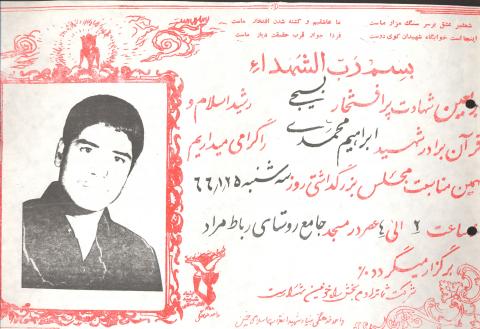 شعله‌ای عشق بر سر سنگ مزار ماست
ما عاشقیم و کشته شدن افتخار ماست
اینجاست خوابگاه شهیدان کوی دوست
فردا جوار قرب حقیقت دیار ماست
بسم رب الشهداء
بعین شهادت پرافتخار بسیجی رشید اسلام و
قرآن برادر شهید ابراهیم محمدی را گرامی میداریم
همین مناسبت مجلس بزرگداشتی روز سه شنبه ۶۶/۱۲۵
ساعت ۲ الی ۴ عصر در مسجد جامع روستای رباط مراد
برگزار میگردد
شرکت شما تداوم بخش راه خونین شهداست